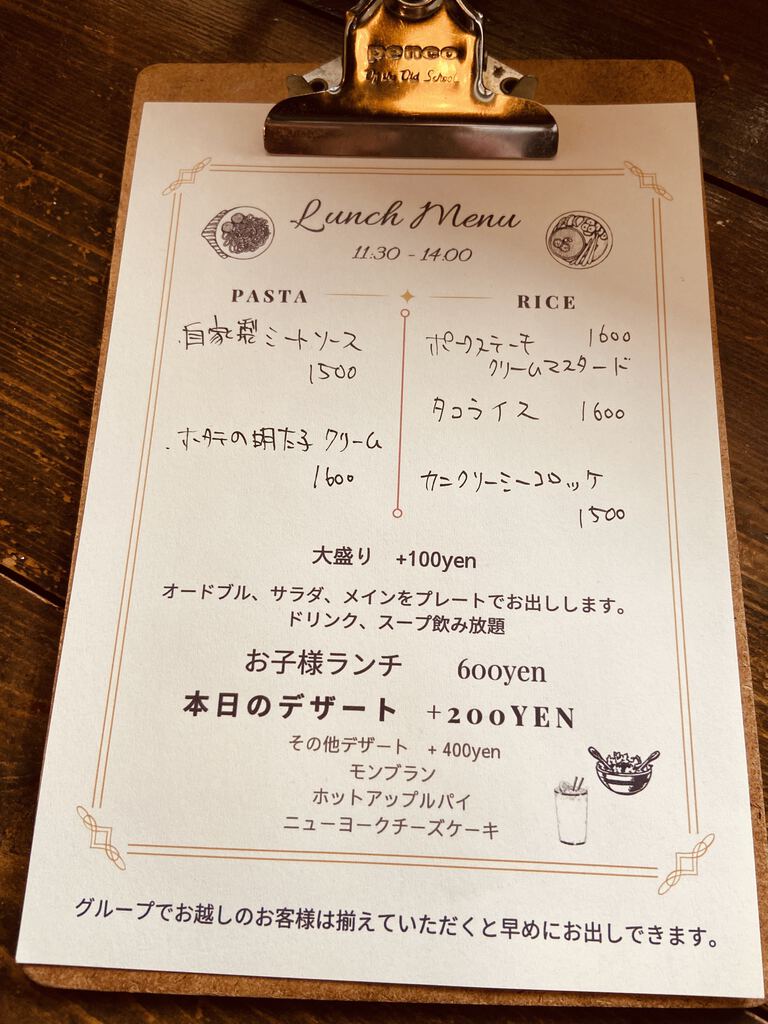 penco
Up the Old School
Lunch Menu
11:30 - 14:00
PASTA
RICE
自家製ミートソース
1500
ホタテの明太子クリーム
1600
ポークステーキ 1600
クリームマスタード
タコライス 1600
カニクリーミーコロッケ
1500
大盛り +100yen
オードブル、サラダ、メインをプレートでお出しします。
ドリンク、スープ飲み放題
お子様ランチ 600yen
本日のデザート +200YEN
その他デザート + 400yen
モンブラン
ホットアップルパイ
ニューヨークチーズケーキ
グループでお越しのお客様は揃えていただくと早めにお出しできます。